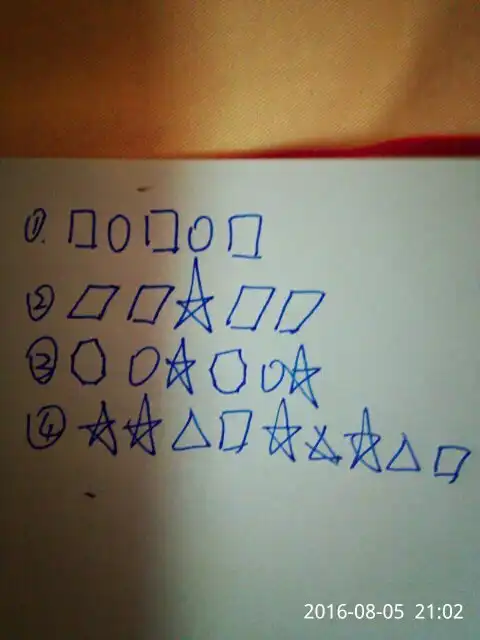 ①
②
③
④
2016-08-05 21:02